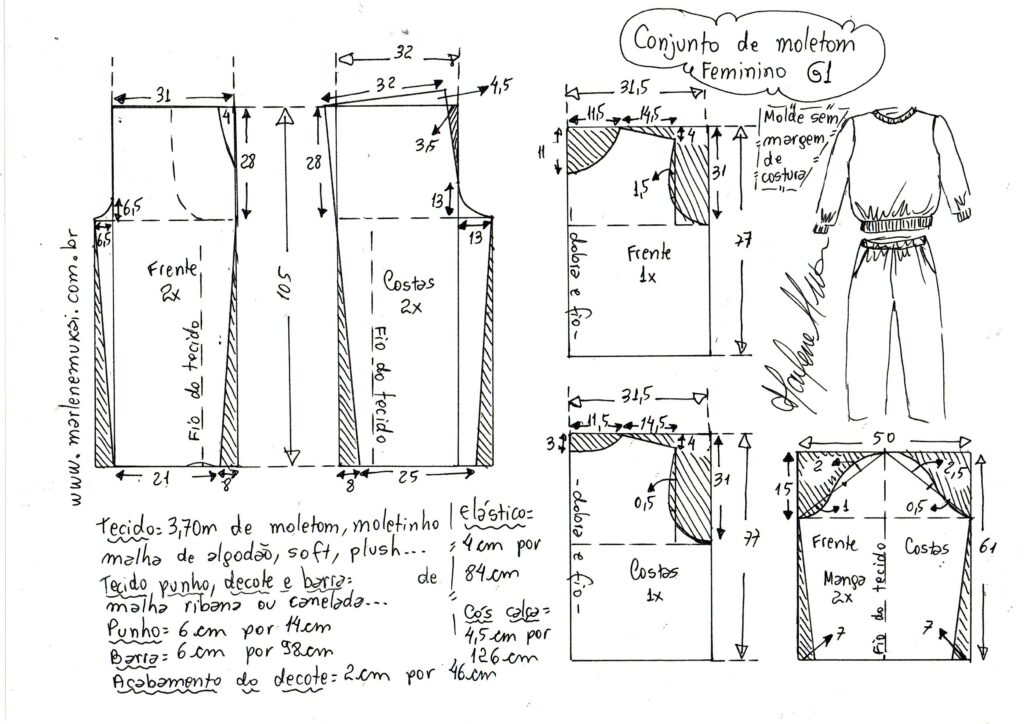 Conjunto de moletom
Feminino G1
Molde sem
margem
de
costura
www.marlenemukai.com.br
31
4
28
6,5
6,5
Frente
2x
Fio do tecido
21
8
105
32
32
4,5
3,5
28
13
13
Costas
2x
Fio do tecido
8
25
31,5
11,5
14,5
11
4
1,5
31
77
Frente
1x
-dobra e fio-
31,5
11,5
14,5
3
4
0,5
31
77
Costas
1x
-dobra e fio-
50
2
2,5
15
1
0,5
61
Frente
Costas
Manga
2x
Fio do tecido
7
7
Tecido= 3,70m de moletom, moletinho
malha de algodão, soft, plush...
Tecido punho, decote e barra= de
malha ribana ou canelada...
Punho= 6 cm por 14cm
Barra= 6 cm por 98cm
Acabamento do decote= 2 cm por 46cm
elástico=
4 cm por
84 cm
Cós calça=
4,5 cm por
126 cm